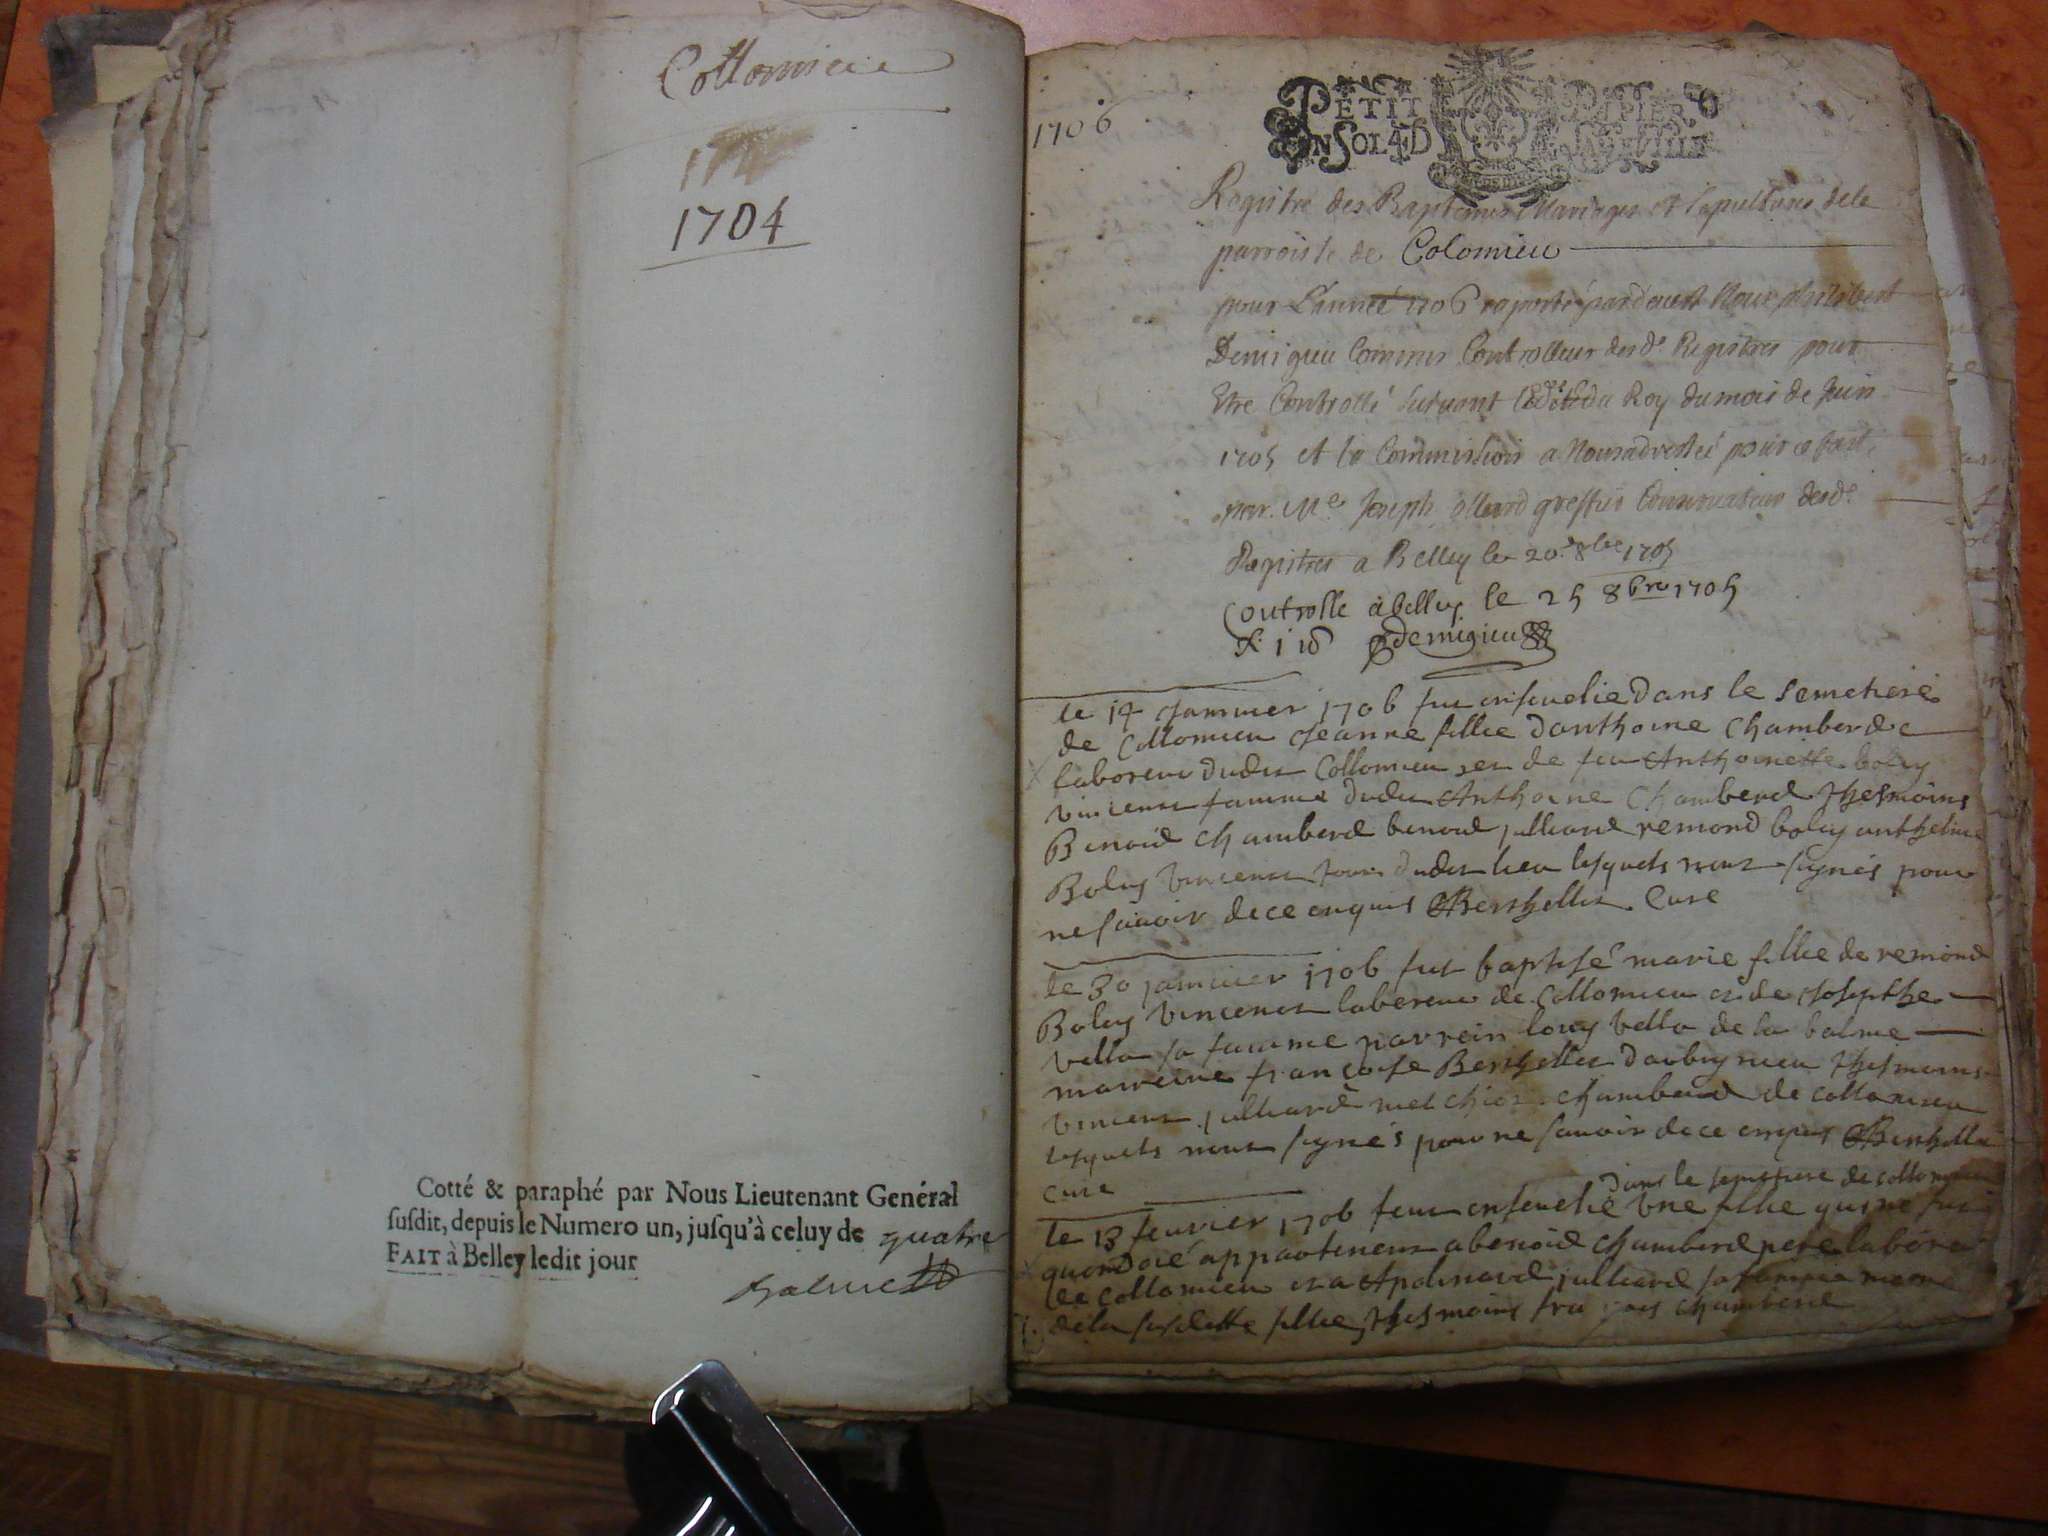 Collomieu
1704
Cotté & paraphé par Nous Lieutenant Genéral
susdit, depuis le Numero un, jusqu'à celuy de quatre
FAIT à Belley ledit jour
1706
PETIT PAPIER
UN SOL 4 D
Registre des Baptemes Mariages et sepultures de la
parroisse de Colomieu
pour L'année 1706 raporté pardevant Nous philibert
Demigieu Commis Controlleur desd. Registres pour
Etre Controllé suivant du Roy du mois de Juin
1705 et la Commission a Nous adressée pour ce fait
par Me Joseph greffier Conservateur desd.
Registres a Belley le 20e 8bre 1705
Controlle à belley le 25 8bre 1705
demigieu
le 14 janvier 1706 fut ensevelie dans le semetiere
de Collomieu Jeanne fillie danthoine Chamberd
laboreur dudit Collomieu et de feu Anthoinette boley
vincent famme dudit Anthoine Chamberd thesmoins
Benoid Chamberd benoid julliard remond boley anthelme
Boley vincent tous dudit lieu lesquels nont signés pour
ne savoir de ce enquis Berthellier Cure
le 30 janvier 1706 fut baptisé marie fillie de remond
Boley vincent laboreur de Collomieu et de Josepthe
vella sa famme parrein louy vella de la balme
marreine françoise Berthellier thesmoins
vincent julliard melchior chamberd de collomieu
lesquels nont signés pour ne savoir de ce enquis Berthellier
cure
dans le semetiere de collomieu
le 13 fevrier 1706 fut ensevelie une fillie qui ne fut
appartenent a benoid chamberd pere laboreur
de collomieu et a julliard sa famme mere
de la susditte fillie thesmoins françois chamberd